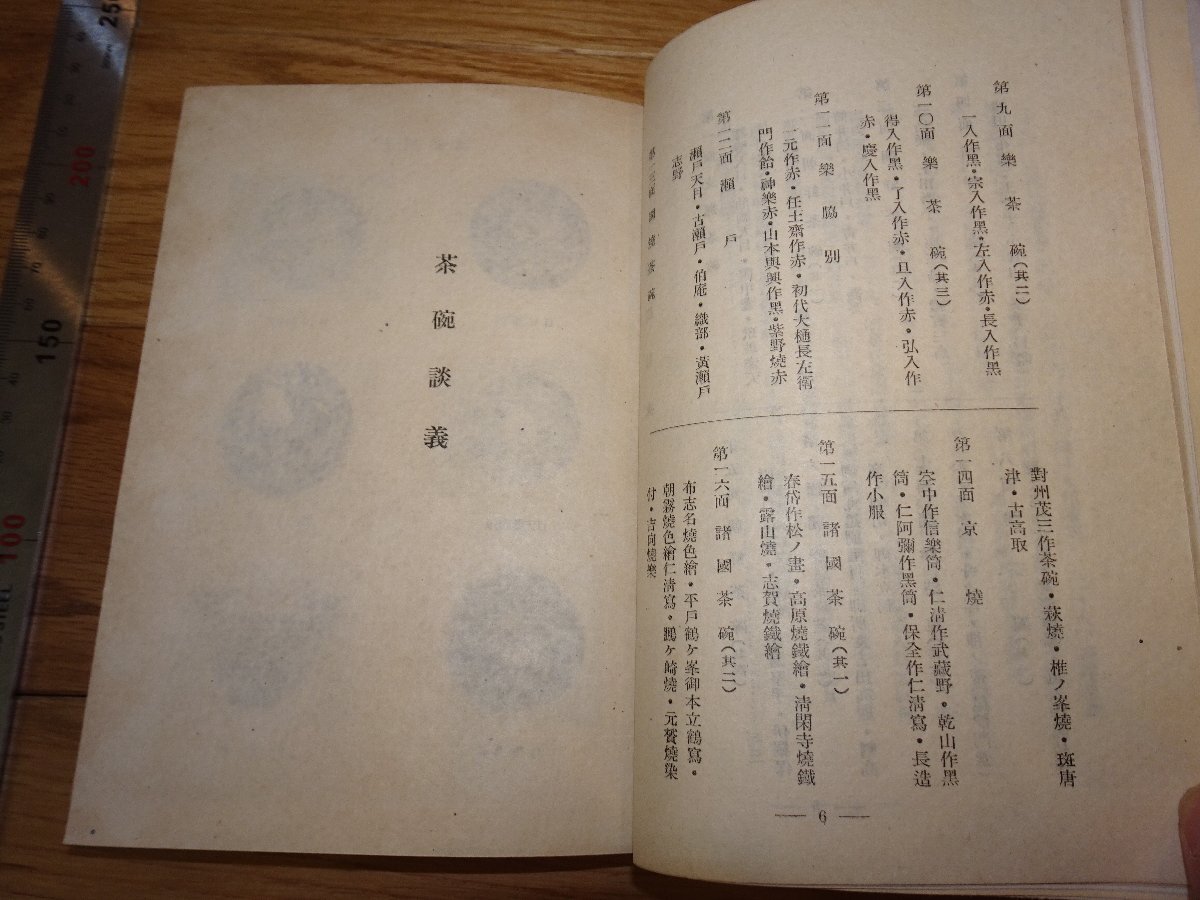 第九面　樂　茶　碗（其二）
一入作黑・宗入作黑・左入作赤・長入作黑
第一〇面　樂　茶　碗（其三）
得入作黑・了入作赤・旦入作赤・弘入作
赤・慶入作黑
第一一面　樂　脇　別
一元作赤・任土齋作赤・初代大樋長左衛
門作飴・神樂赤・山本與興作黑・紫野燒赤
第一二面　瀨　戶
瀨戶天目・古瀨戶・伯庵・織部・黃瀨戶
志野
第一三面　國燒茶碗
對州茂三作茶碗・萩燒・椎ノ峯燒・斑唐
津・古高取
第一四面　京　燒
空中作信樂筒・仁淸作武藏野・乾山作黑
筒・仁阿彌作黑筒・保全作仁淸寫・長造
作小服
第一五面　諸　國　茶　碗（其一）
春岱作松ノ畫・高原燒鐵繪・淸閑寺燒鐵
繪・露山燒・志賀燒鐵繪
第一六面　諸　國　茶　碗（其二）
布志名燒色繪・平戶鶴ケ峯御本立鶴寫・
朝霧燒色繪仁淸寫・鵬ケ崎燒・元贇燒染
付・吉向燒樂
— 6 —
茶碗談義
250
200
150
100